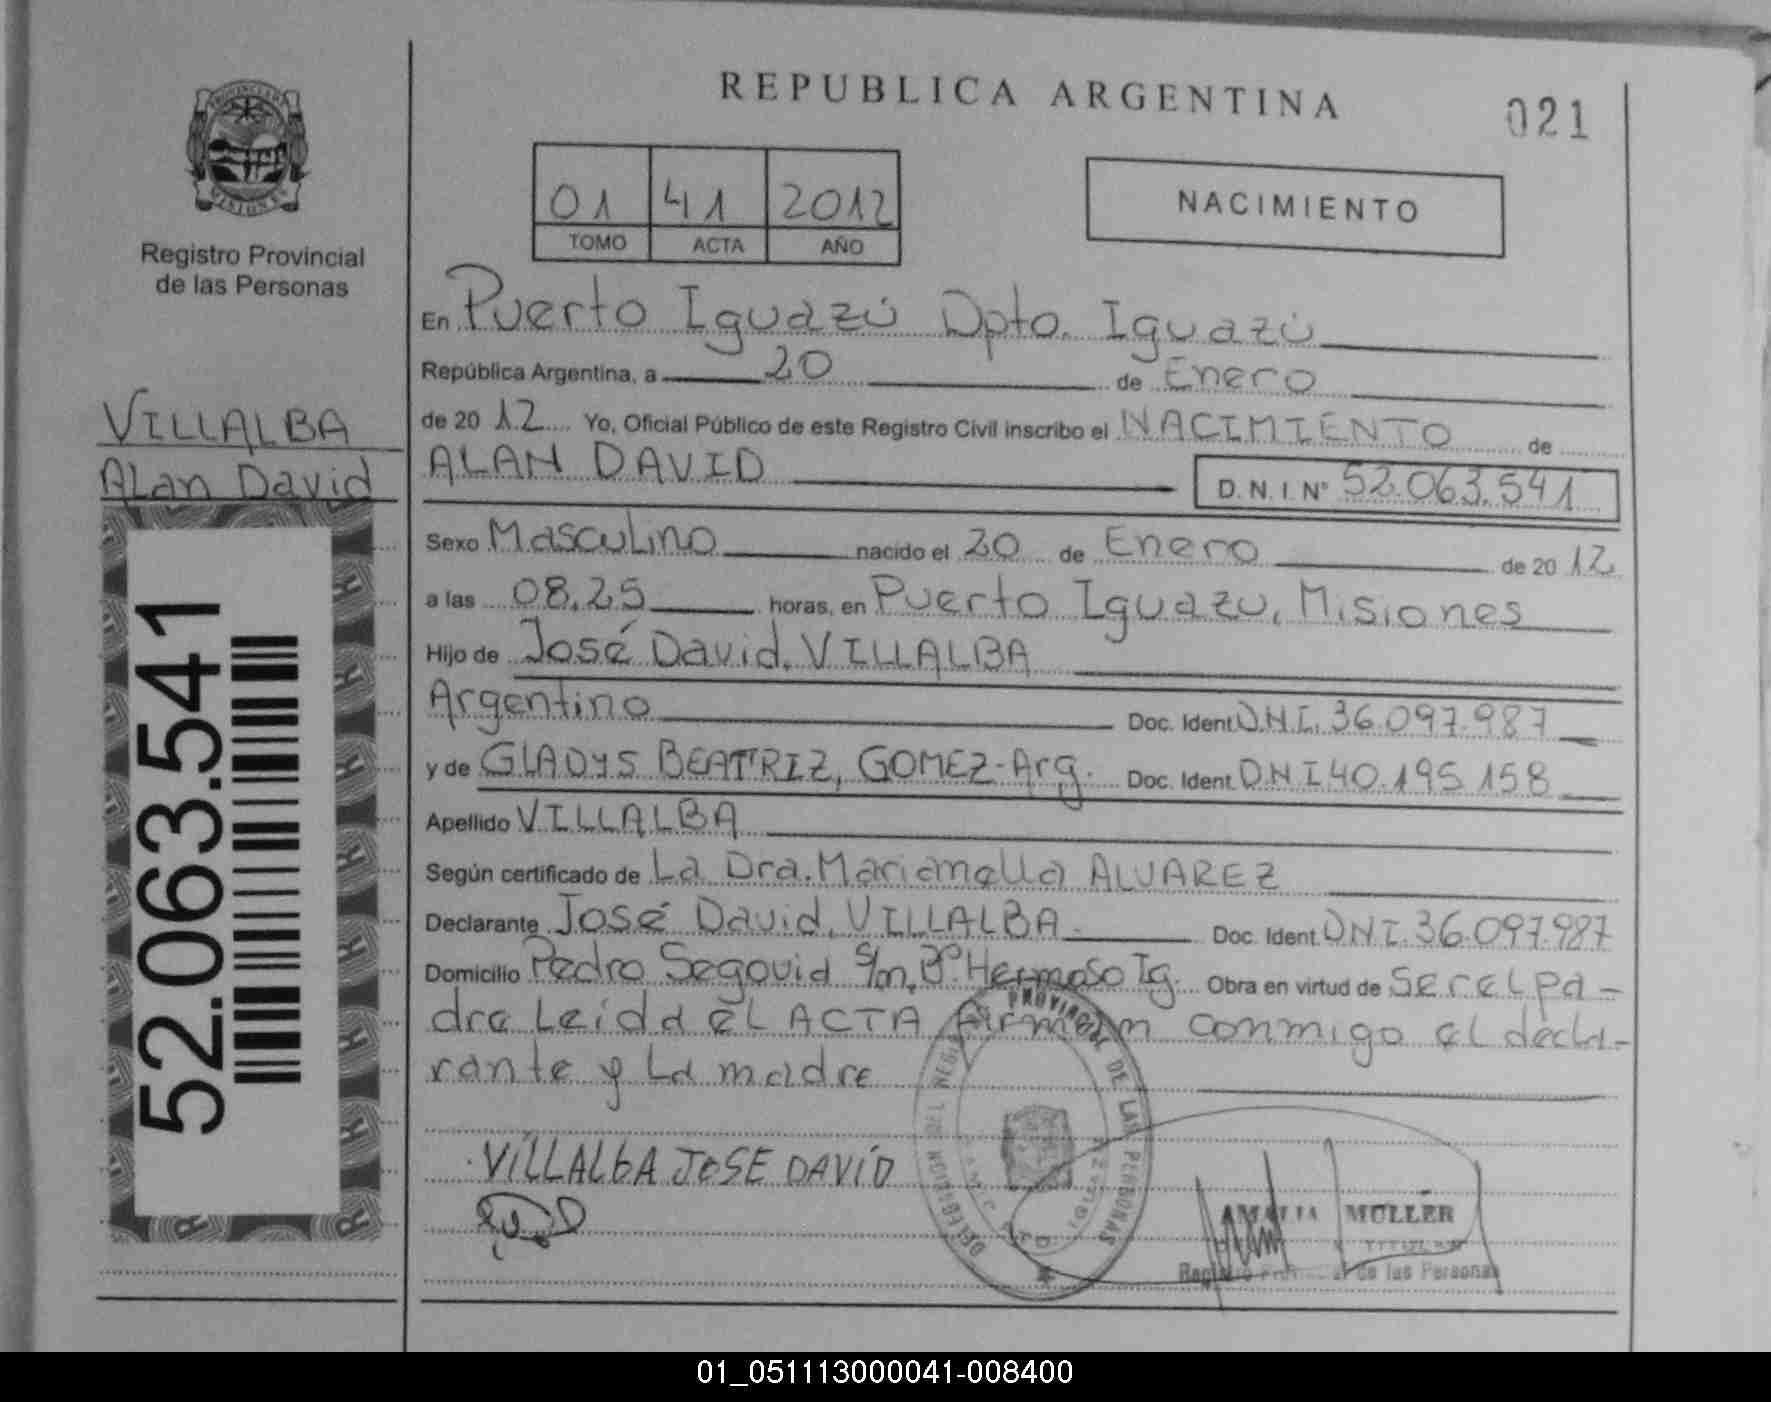 REPUBLICA ARGENTINA
021
Registro Provincial
de las Personas
01 41 2012
TOMO ACTA AÑO
NACIMIENTO
VILLALBA
Alan David
52.063.541
En Puerto Iguazú Dpto. Iguazú
República Argentina, a 20 de Enero
de 2012 Yo, Oficial Público de este Registro Civil inscribo el NACIMIENTO de
ALAN DAVID D.N.I. Nº 52.063.541
Sexo Masculino nacido el 20 de Enero de 2012
a las 08.25 horas, en Puerto Iguazu, Misiones
Hijo de José David, VILLALBA
Argentino Doc. Ident D.N.I. 36.097.987
y de GLADYS BEATRIZ, GOMEZ-Arg. Doc. Ident D.N.I 40.195.158
Apellido VILLALBA
Según certificado de La Dra. Marianella ALVAREZ
Declarante José David, VILLALBA Doc. Ident DNI. 36.097.987
Domicilio Pedro Segovia S/n, Bº. Hermoso Ig. Obra en virtud de Ser el pa-
dre Leida el ACTA firman conmigo el decla-
rante y La madre
VILLALbA JOSE DAVID
PROVINCIAL DE LAS PERSONAS
DELEGACION
AMALIA MULLER
TITULAR
Registro Provincial de las Personas
01_051113000041-008400